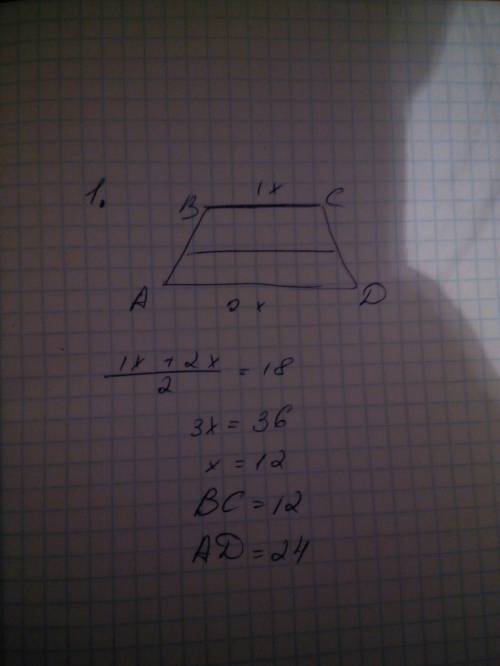 1.
1x
B C
A D
2x
(1x + 2x)/2 = 18
3x = 36
x = 12
BC = 12
AD = 24